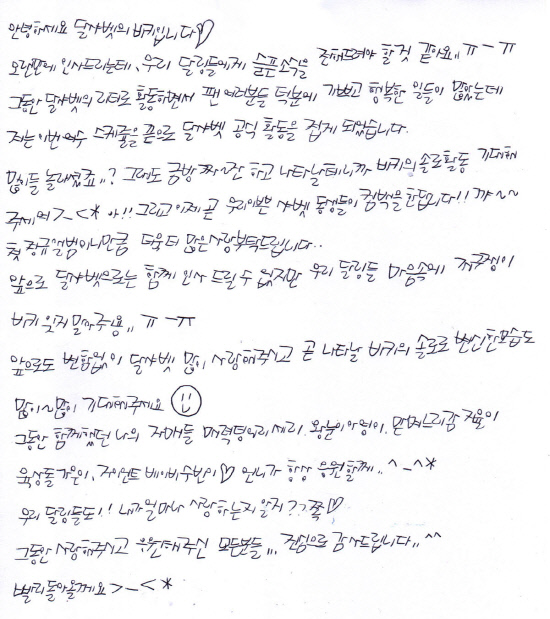 안녕하세요 달샤벳의 비키입니다♡
오랜만에 인사드리는데, 우리 달링들에게 슬픈소식을 전해드려야 할것 같아요,, ㅠ-ㅠ
그동안 달샤벳의 리더로 활동하면서 팬 여러분들 덕분에 기쁘고 행복한 일들이 많았는데
저는 이번여수 스케줄을 끝으로 달샤벳 공식 활동을 접게 되었습니다.
많이들 놀래셨죠,,? 그래도 금방 짜~잔 하고 나타날테니까 비키의 솔로활동 기대해
주세여>_<* 아!! 그리고 이제 곧 우리이쁜 샤벳 동생들이 컴백을한답니다!! 꺄~~
첫 정규앨범이니만큼 더욱더 많은사랑부탁드립니다..
앞으로 달샤벳으로는 함께 인사 드릴수 없지만 우리 달링들 마음속에
비키 잊지말아주용,, ㅠ-ㅠ
앞으로도 변함없이 달샤벳 많이 사랑해주시고 곧 나타날 비키의 솔로로 변신한모습도
많이~많이 기대해주세요 ☺
그동안 함께했던 나의 자매들 매력덩어리세리, 왕눈이아영이, 만져드리감 지율이
육상돌가은이, 자이언트 베이비수빈이♡ 언니가 항상 응원할께.. ^-^*
우리 달링들도!! 내가얼마나 사랑하는지알지??쪽♡
그동안 사랑해주시고 응원해주신 모든분들,,, 진심으로 감사드립니다,, ^^
빨리돌아올께요>_<*